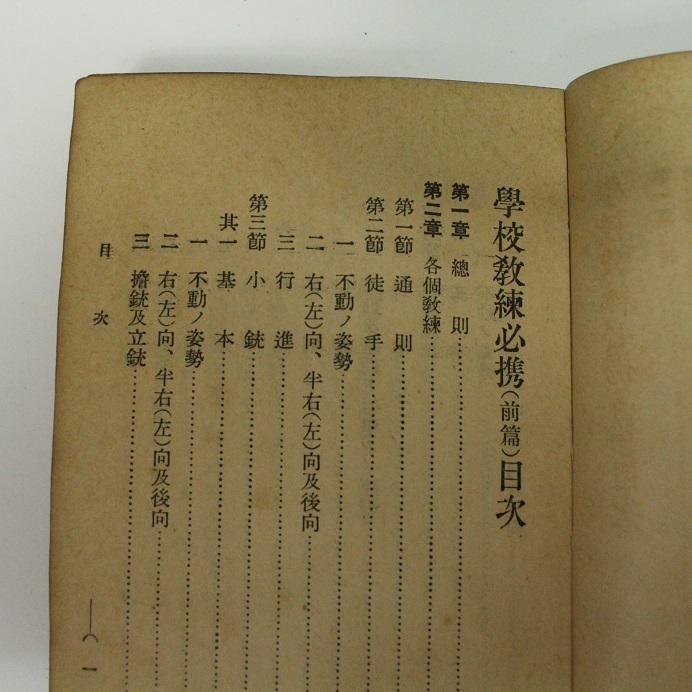 學校教練必携(前篇)目次
第一章 總則
第二章 各個教練
第一節 通則
第二節 徒手
一 不動ノ姿勢
二 右(左)向、半右(左)向及後向
三 行進
第三節 小銃
其一 基本
一 不動ノ姿勢
二 右(左)向、半右(左)向及後向
三 擔銃及立銃
目次
一